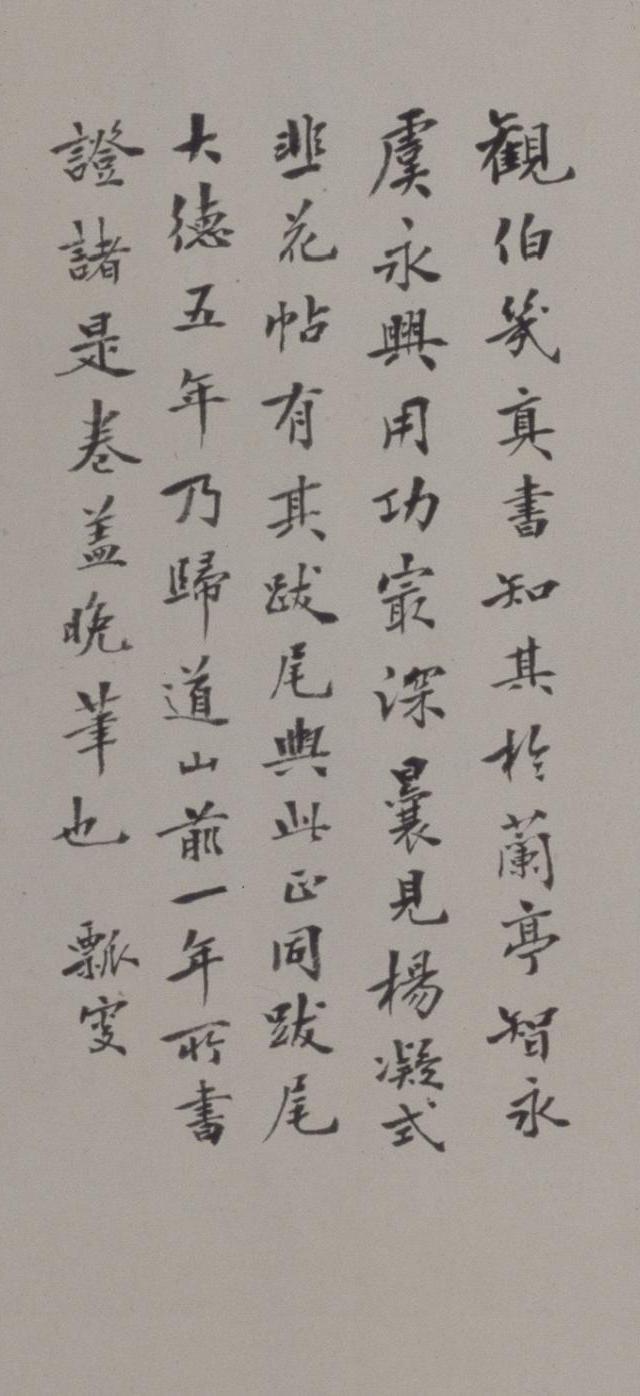 觀伯幾真書知其於蘭亭智永
虞永興用功㝡深曩見楊凝式
韭花帖有其跋尾與此正同跋尾
大德五年乃歸道山前一年所書
證諸是卷盖晚筆也 瓢叟